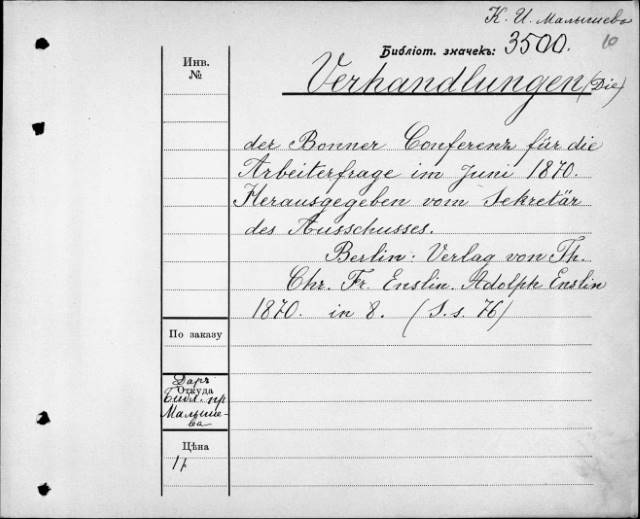 К. И. Малышева
10
Библіот. значекъ: 3500.
Инв.
№
Verhandlungen (Die)
der Bonner Conferenz für die
Arbeiterfrage im Juni 1870.
Herausgegeben vom Sekretär
des Ausschusses.
Berlin: Verlag von Th.
Chr. Fr. Enslin. Adolph Enslin
1870. in 8. (S. s. 76)
По заказу
Даръ
Откуда
Библ. пр
Малыше-
ва
Цѣна
1 р